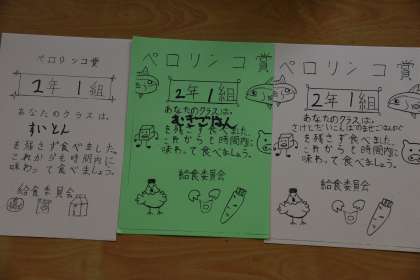 ペロリンコ賞
2年 1組
あなたのクラスは、
すいとん
を残さず食べました。
これからも時間内に
味わって食べましょう。
給食委員会
ペロリンコ賞
2年 1組
あなたのクラスは、
むぎごはん
を残さず食べました。
これからも時間内に
味わって食べましょう。
給食委員会
ペロリンコ賞
2年 1組
あなたのクラスは、
を残さず食べました。
これからも時間内に
味わって食べましょう。
給食委員会